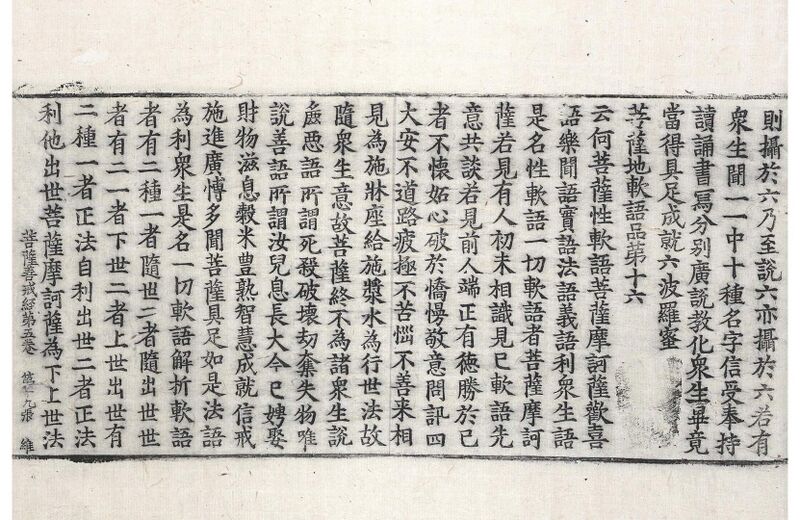 則攝於六乃至說六亦攝於六若有
衆生聞一一中十種名字信受奉持
讀誦書寫分别廣說教化衆生畢竟
當得具足成就六波羅蜜
菩薩地軟語品第十六
云何菩薩性軟語菩薩摩訶薩歡喜
語樂聞語實語法語義語利衆生語
是名性軟語一切軟語者菩薩摩訶
薩若見有人初未相識見已軟語先
意共談若見前人端正有德勝於已
者不懷妬心破於憍慢敬意問訊四
大安不道路疲極不苦惱不善来相
見為施牀座給施漿水為行世法故
隨衆生意故菩薩終不為諸衆生說
麁惡語所謂死殺破壞劫奪失物唯
說善語所謂汝兒息長大今已娉娶
財物滋息穀米豊熟智慧成就信戒
施進廣博多聞菩薩具足如是法語
為利衆生是名一切軟語解析軟語
者有二種一者隨世二者隨出世世
者有二一者下世二者上世出世有
二種一者正法自利出世二者正法
利他出世菩薩摩訶薩為下上世法
菩薩善戒經第五卷 九張 維